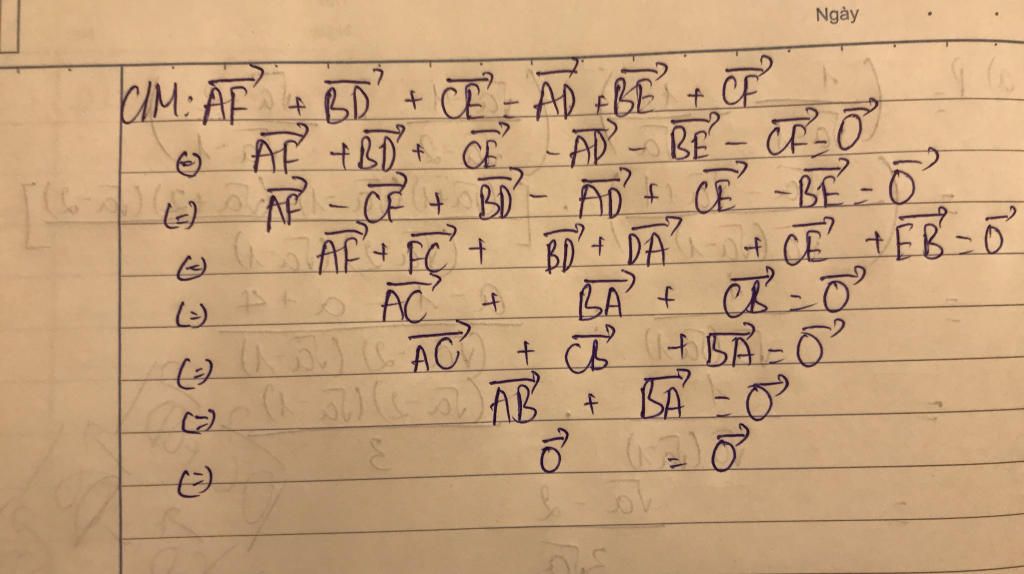 Ngày
C/M: \overrightarrow{AF} + \overrightarrow{BD} + \overrightarrow{CE} = \overrightarrow{AD} + \overrightarrow{BE} + \overrightarrow{CF}
(=) \overrightarrow{AF} + \overrightarrow{BD} + \overrightarrow{CE} - \overrightarrow{AD} - \overrightarrow{BE} - \overrightarrow{CF} = \overrightarrow{O}
(=) \overrightarrow{AF} - \overrightarrow{CF} + \overrightarrow{BD} - \overrightarrow{AD} + \overrightarrow{CE} - \overrightarrow{BE} = \overrightarrow{O}
(=) \overrightarrow{AF} + \overrightarrow{FC} + \overrightarrow{BD} + \overrightarrow{DA} + \overrightarrow{CE} + \overrightarrow{EB} = \overrightarrow{O}
(=) \overrightarrow{AC} + \overrightarrow{BA} + \overrightarrow{CB} = \overrightarrow{O}
(=) \overrightarrow{AC} + \overrightarrow{CB} + \overrightarrow{BA} = \overrightarrow{O}
(=) \overrightarrow{AB} + \overrightarrow{BA} = \overrightarrow{O}
(=) \overrightarrow{O} = \overrightarrow{O}